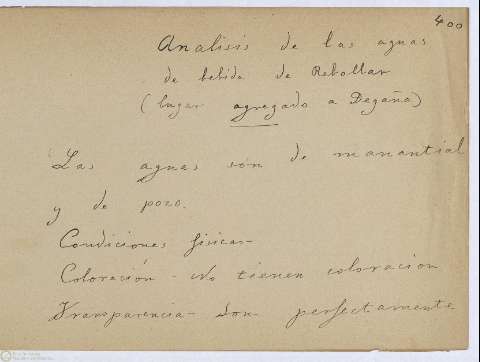 400
Analisis de las aguas
de bebida de Rebollar
(lugar agregado a Degaña)
Las aguas són de manantial
y de pozo.
Condiciones fisicas-
Coloración - No tienen coloracion
Transparencia - Son perfectamente